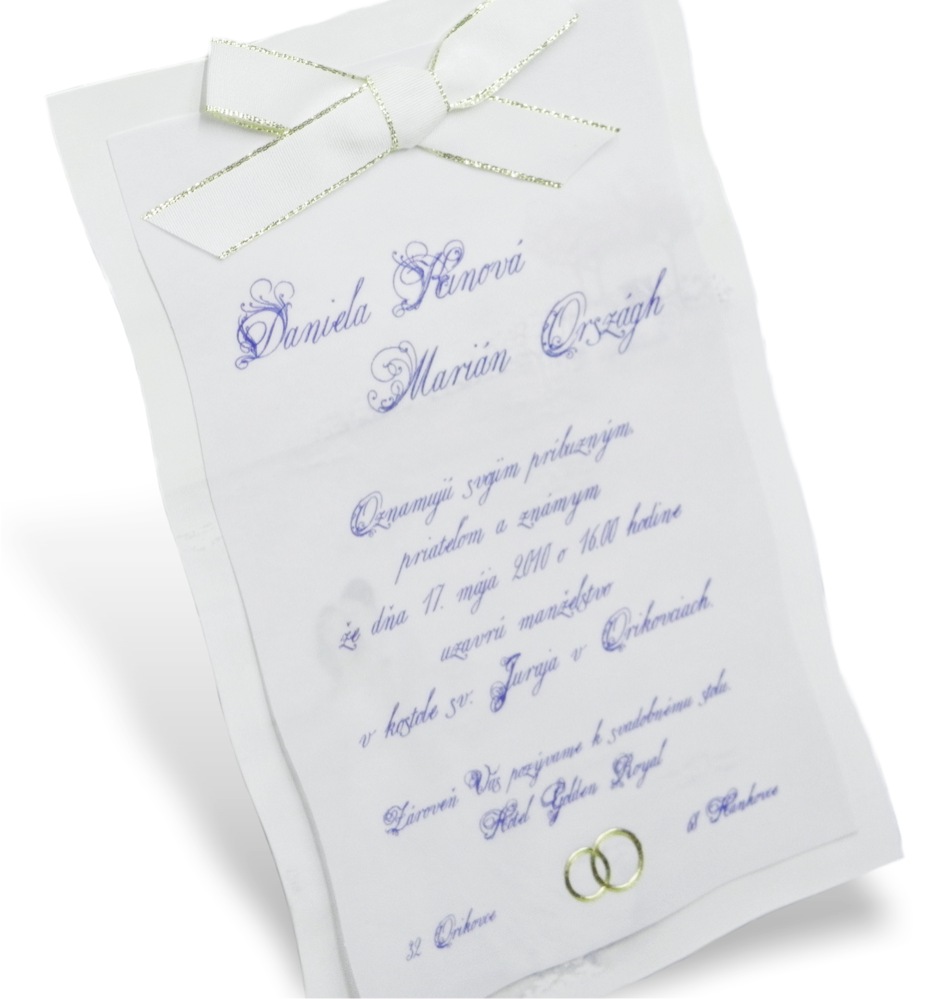 Daniela Hanová
Marián Országh
Oznamujú svojim príbuzným,
priateľom a známym
že dňa 17. mája 2010 o 16.00 hodine
uzavrú manželstvo
v kostole sv. Juraja v Orikovciach.
Zároveň Vás pozývame k svadobnému stolu.
Hotel Golden Royal
Hankovce
32 Orikovce